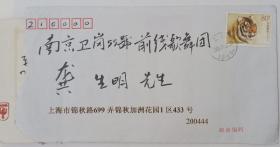 210000
南京卫岗55号 前线歌舞团
龚生明 先生
上海市锦秋路699弄锦秋加洲花园1区433号
200444
邮政编码